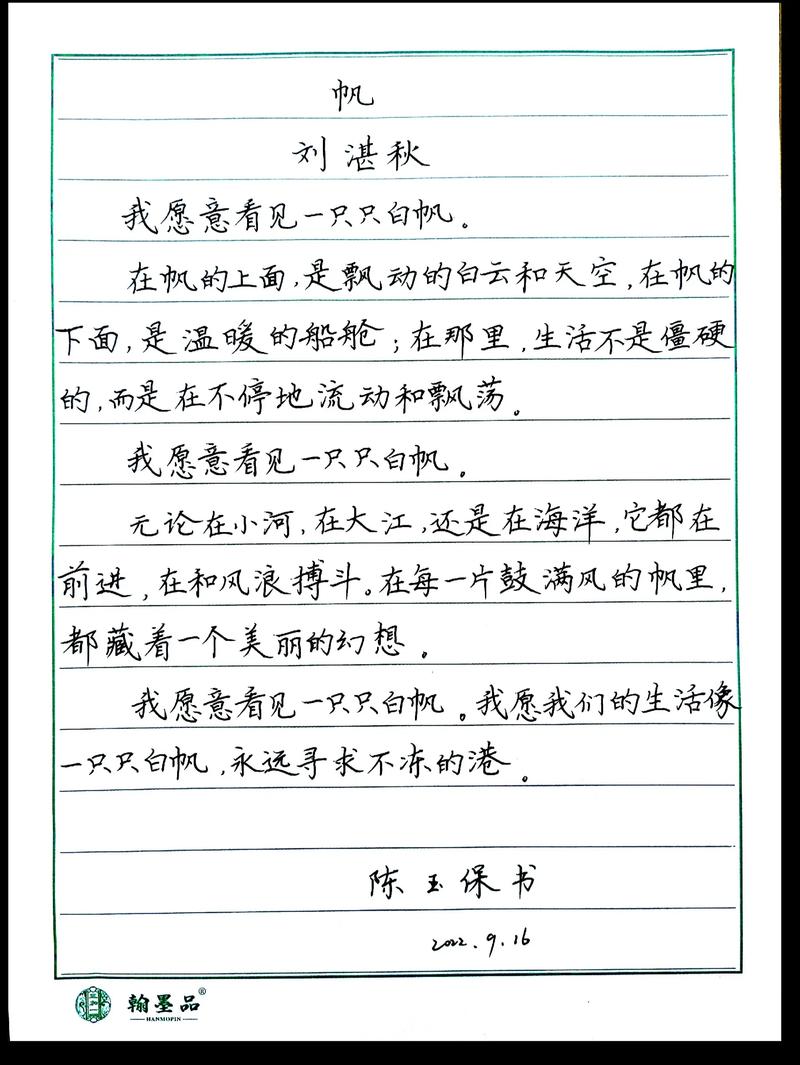 帆
刘湛秋
我愿意看见一只只白帆。
在帆的上面,是飘动的白云和天空,在帆的
下面,是温暖的船舱;在那里,生活不是僵硬
的,而是在不停地流动和飘荡。
我愿意看见一只只白帆。
无论在小河,在大江,还是在海洋,它都在
前进,在和风浪搏斗。在每一片鼓满风的帆里,
都藏着一个美丽的幻想。
我愿意看见一只只白帆。我愿我们的生活像
一只只白帆,永远寻求不冻的港。
陈玉保书
2022.9.16
翰墨品®
HANMOPIN